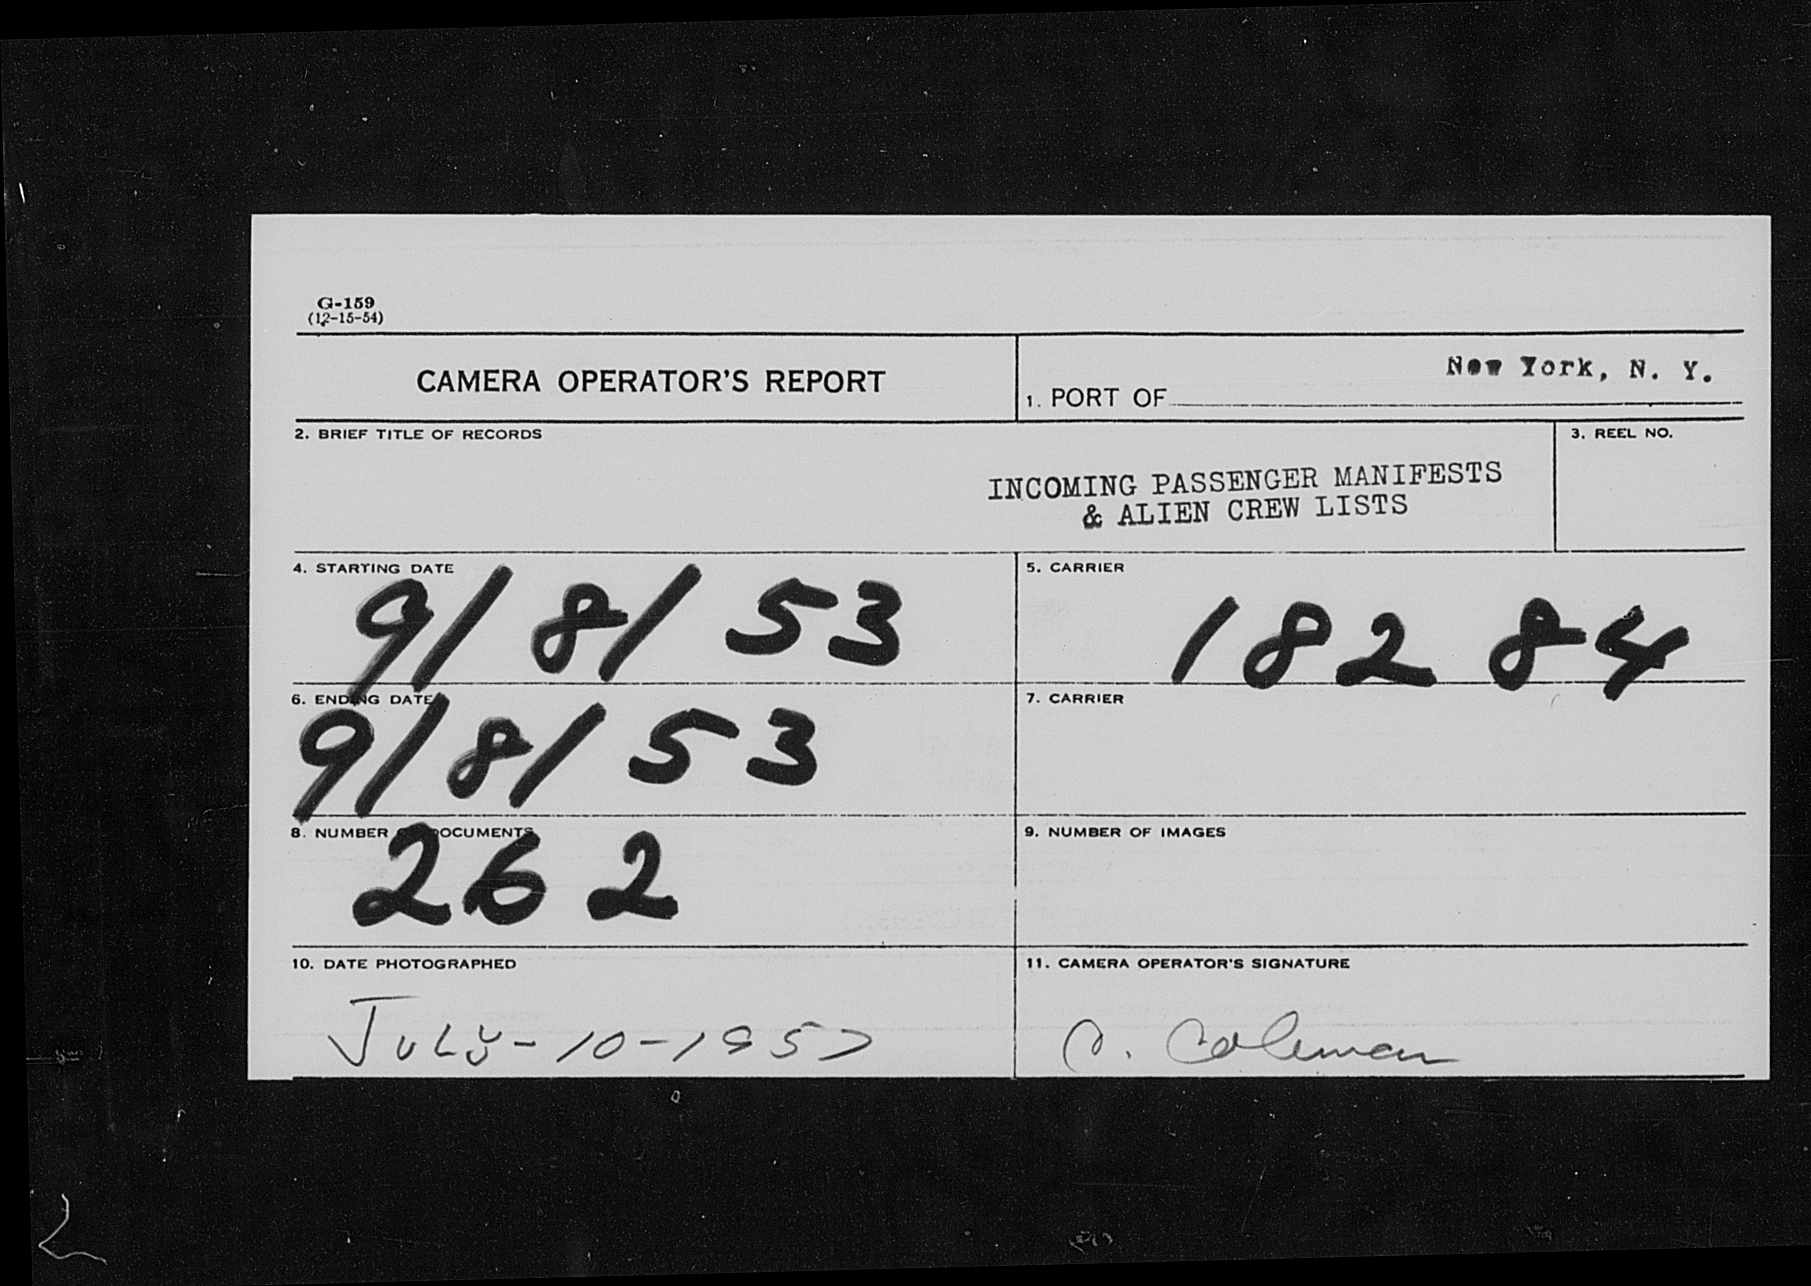 G-159
(12-15-54)
CAMERA OPERATOR'S REPORT
1. PORT OF New York, N. Y.
2. BRIEF TITLE OF RECORDS
INCOMING PASSENGER MANIFESTS
& ALIEN CREW LISTS
3. REEL NO.
4. STARTING DATE
9/8/53
5. CARRIER
18284
6. ENDING DATE
9/8/53
7. CARRIER
8. NUMBER OF DOCUMENTS
262
9. NUMBER OF IMAGES
10. DATE PHOTOGRAPHED
JULY-10-1957
11. CAMERA OPERATOR'S SIGNATURE
Coleman